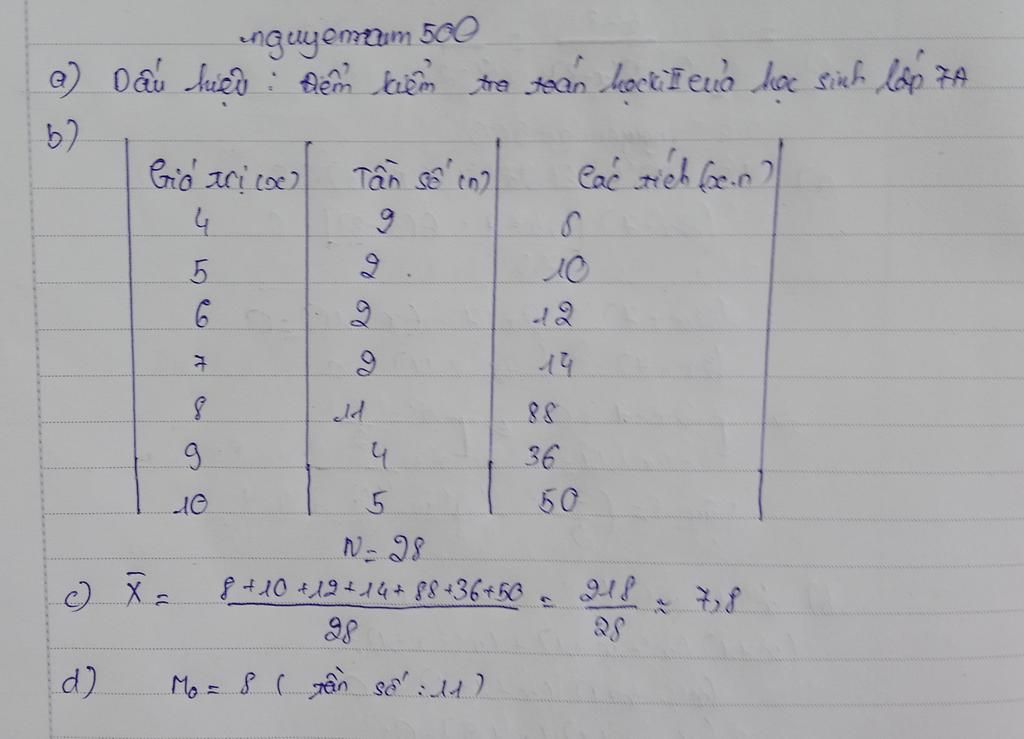 nguyennam500
a) Dấu hiệu : Điểm kiểm tra toán học kì II của học sinh lớp 7A
b)
Giá trị (x) Tần số (n) Các tích (x.n)
4 2 8
5 2 10
6 2 12
7 2 14
8 11 88
9 4 36
10 5 50
N = 28
c) X̄ = (8+10+12+14+88+36+50)/28 = 218/28 ≈ 7,8
d) M₀ = 8 ( tần số : 11 )